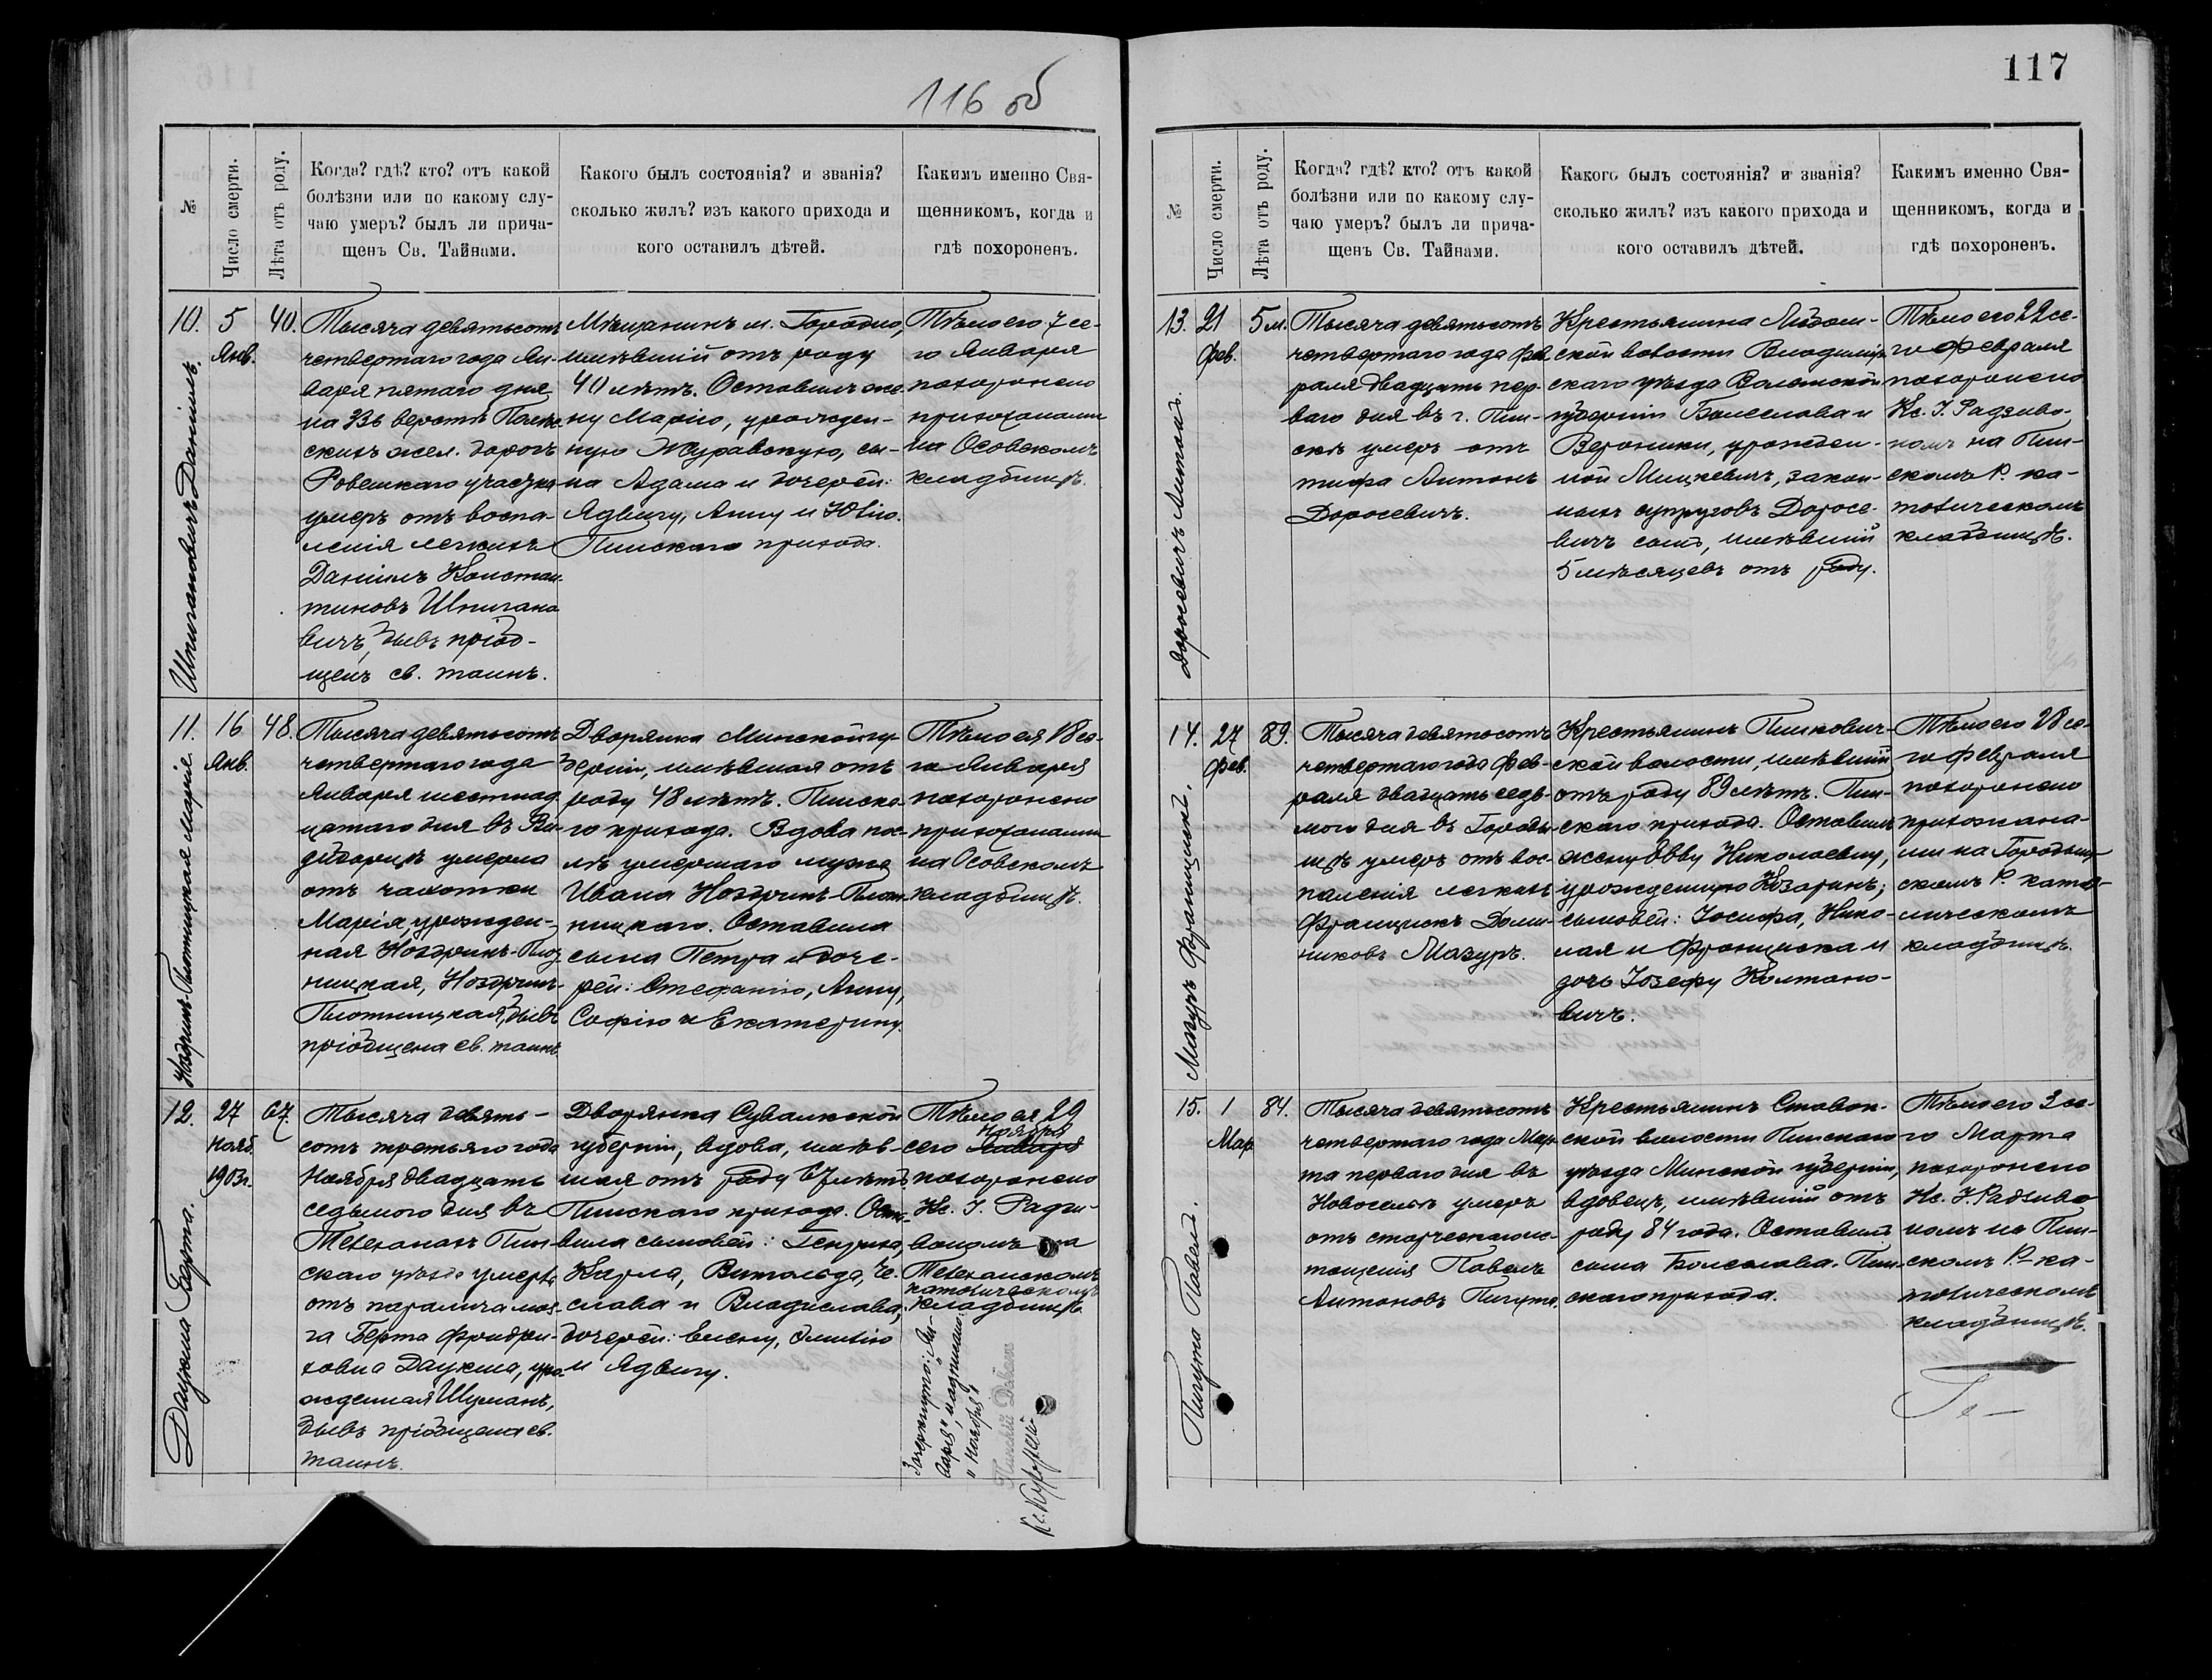 116 об
№
Число смерти.
Лѣта отъ роду.
Когда? гдѣ? кто? отъ какой
болѣзни или по какому слу-
чаю умеръ? былъ ли прича-
щенъ Св. Тайнами.
Какого былъ состоянія? и званія?
сколько жилъ? изъ какого прихода и
кого оставилъ дѣтей.
Какимъ именно Свя-
щенникомъ, когда и
гдѣ похороненъ.
10.
Шпигановичъ Даніилъ.
5
Янв.
40.
Тысяча девятьсотъ
четвертаго года Ян-
варя пятаго дня
на верстѣ Полѣс-
скихъ жел. дорогъ
Ровенскаго участка
умеръ отъ воспа-
ленія легкихъ
Даніилъ Констан-
тиновъ Шпигано
вичъ, бывъ пріоб-
щенъ св. таинъ.
Мѣщанинъ м. Городно,
имѣвшій отъ роду
40 лѣтъ. Оставилъ же-
ну Марію, урожден-
ную Журавскую, сы-
на Адама и дочерей:
Ядвигу, Анну и Юлію.
Пинскаго прихода.
Тѣло его 7 се-
го Января
похоронено
прихожанами
на Осовскомъ
кладбищѣ.
11.
Ноздринъ-Плотницкая Марія.
16
Янв.
48.
Тысяча девятьсотъ
четвертаго года
Января шестнад
цатаго дня въ Ви-
дѣборцѣ умерла
отъ чахотки
Марія, урожден-
ная Ноздринъ-Плот
ницкая, Ноздринъ-
Плотницкая, бывъ
пріобщена св. таинъ.
Дворянка Минской гу-
берніи, имѣвшая отъ
роду 48 лѣтъ. Пинска-
го прихода. Вдова пос-
лѣ умершаго мужа
Ивана Ноздринъ-Плот-
ницкаго. Оставила
сына Петра и доче-
рей: Стефанію, Анну,
Софію и Екатерину.
Тѣло ея 18 се-
го Января
похоронено
прихожанами
на Осовскомъ
кладбищѣ.
12.
Даукша Берта.
27
Нояб.
1903г.
67.
Тысяча девять-
сотъ третьяго года
Ноября двадцать
седьмого дня въ
Телеханахъ Пин-
скаго уѣзда умерла
отъ паралича моз-
га Берта Фридри-
ховна Даукша, уро-
жденная Шуманъ,
бывъ пріобщена св.
таинъ.
Дворянка Сувалкской
губерніи, вдова, имѣв-
шая отъ роду 67 лѣтъ.
Пинскаго прихода. Оста-
вила сыновей: Генриха,
Карла, Витольда, Че-
слава и Владислава,
дочерей: Елену, Эмилію
и Ядвигу.
Тѣло ея 29
Ноября
сего Января
похоронено
Кс. І. Радзи-
вономъ на
Телеханскомъ
католическомъ
кладбищѣ.
Зачеркнуто: „Ян-
варя“, надписано:
„Ноября“
Пинскій Деканъ
117
№
Число смерти.
Лѣта отъ роду.
Когда? гдѣ? кто? отъ какой
болѣзни или по какому слу-
чаю умеръ? былъ ли прича-
щенъ Св. Тайнами.
Какого былъ состоянія? и званія?
сколько жилъ? изъ какого прихода и
кого оставилъ дѣтей.
Какимъ именно Свя-
щенникомъ, когда и
гдѣ похороненъ.
13.
Доросевичъ Антонъ.
21
Фев.
5 м.
Тысяча девятьсотъ
четвертаго года Фев
раля двадцать пер-
ваго дня въ г. Пин-
скѣ умеръ отъ
тифа Антонъ
Доросевичъ.
Крестьянина
ской волости Владимір-
скаго уѣзда Волынской
губерніи Болеслава и
Вероники, урожден-
ной Мицкевичъ, закон-
ныхъ супруговъ Доросе-
вичъ сынъ, имѣвшій
5 мѣсяцевъ отъ роду.
Тѣло его 22 се-
го Февраля
похоронено
Кс. І. Радзиво-
номъ на Пин-
скомъ Р. ка-
толическомъ
кладбищѣ.
14.
Мазуръ Францискъ.
27
Фев.
89.
Тысяча девятьсотъ
четвертаго года Фев-
раля двадцать седь-
мого дня въ Городи-
щѣ умеръ отъ вос-
паленія легкихъ
Францискъ Доми-
никовъ Мазуръ.
Крестьянинъ Пинкович-
ской волости, имѣвшій
отъ роду 89 лѣтъ. Пин-
скаго прихода. Оставилъ
жену Еву Николаевну,
урожденную Козаринъ;
сыновей: Іосифа, Нико-
лая и Франциска и
дочь Іозефу Колтано-
вичъ.
Тѣло его 28 се-
го Февраля
похоронено
прихожана-
ми на Городищ-
скомъ Р. като-
лическомъ
кладбищѣ.
15.
Пигута Павелъ.
1
Мар.
84.
Тысяча девятьсотъ
четвертаго года Мар-
та перваго дня въ
Новоселкѣ умеръ
отъ старческаго ис-
тощенія Павелъ
Антоновъ Пигута.
Крестьянинъ Ставок-
ской волости Пинскаго
уѣзда Минской губерніи,
вдовецъ, имѣвшій отъ
роду 84 года. Оставилъ
сына Болеслава. Пин-
скаго прихода.
Тѣло его 3 се-
го Марта
похоронено
Кс. І. Радзиво
номъ на Пин-
скомъ Р-ка-
толическомъ
кладбищѣ.